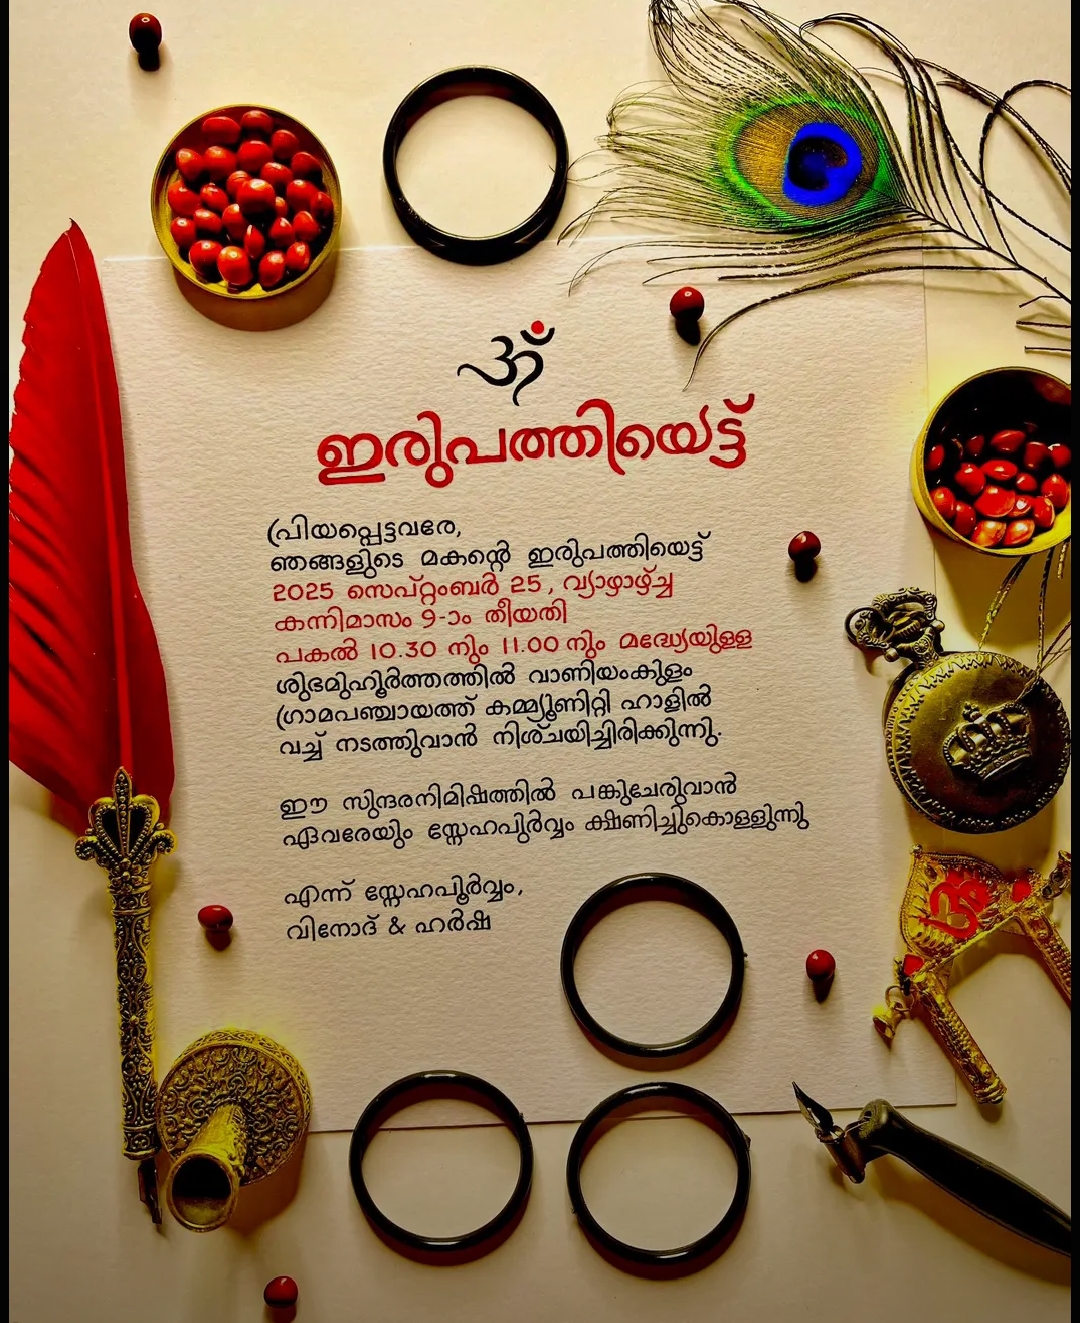 ഓം
ഇരുപത്തിയെട്ട്
പ്രിയപ്പെട്ടവരേ,
ഞങ്ങളുടെ മകന്റെ ഇരുപത്തിയെട്ട്
2025 സെപ്റ്റംബർ 25, വ്യാഴാഴ്ച്ച
കന്നിമാസം 9-ാം തീയതി
പകൽ 10.30 നും 11.00 നും മദ്ധ്യേയുള്ള
ശുഭമുഹൂർത്തത്തിൽ വാണിയംകുളം
ഗ്രാമപഞ്ചായത്ത് കമ്മ്യൂണിറ്റി ഹാളിൽ
വച്ച് നടത്തുവാൻ നിശ്ചയിച്ചിരിക്കുന്നു.
ഈ സുന്ദരനിമിഷത്തിൽ പങ്കുചേരുവാൻ
ഏവരേയും സ്നേഹപുർവ്വം ക്ഷണിച്ചുകൊള്ളുന്നു
എന്ന് സ്നേഹപൂർവ്വം,
വിനോദ് & ഹർഷ